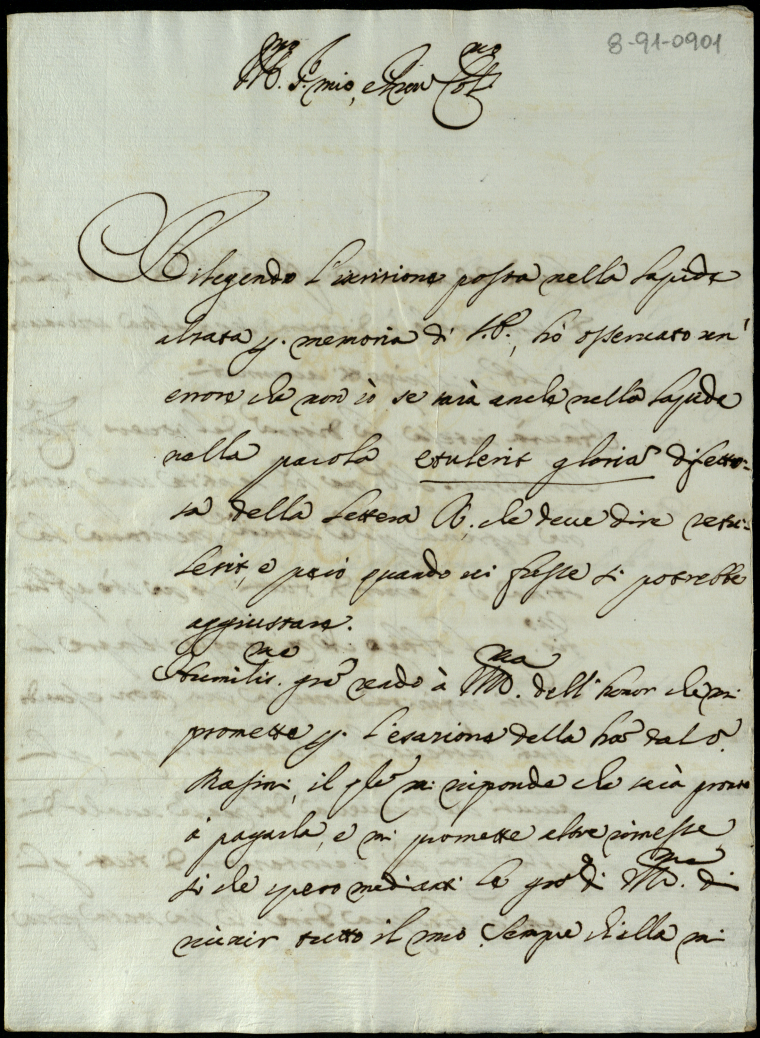 8-91-0901
Ill.mo S.r mio, e Pron Col.mo
Rilegendo l'iscritione posta nella lapide
alzata p. memoria di S.B., hò osservato un'
errore che non sò se sarà anche nella lapide
nella parola etulerit gloria difetto-
sa della lettera R, che deve dire retu-
lerit, e però quando vi fosse si potrebbe
aggiustare.
Humilis.me gre rendo à Ill.ma dell'honor che mi
promette p. l'esazione della dal S.r
Rasini, il qle mi risponde che sarà pronto
à pagarla, e mi promette altre rimesse,
si che spero mediante le gre di Ill.ma di
ritirar tutto il mio. Sempre ch'ella mi